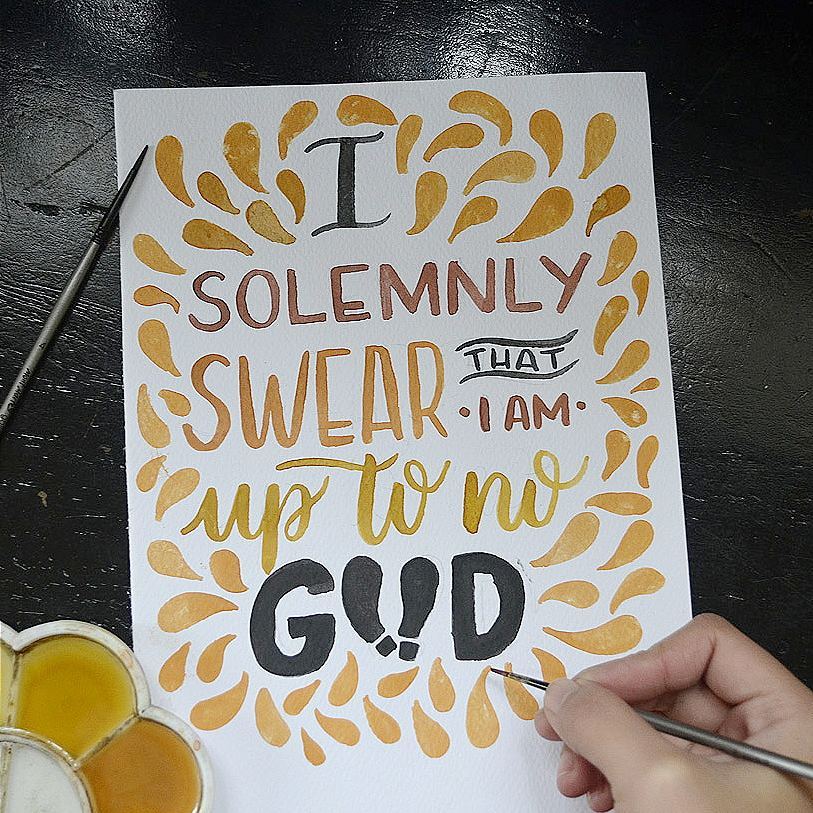 I
SOLEMNLY
SWEAR THAT
· I AM ·
up to no
GOOD